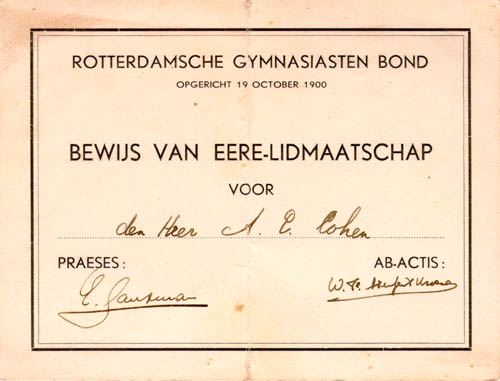 ROTTERDAMSCHE GYMNASIASTEN BOND
OPGERICHT 19 OCTOBER 1900
BEWIJS VAN EERE-LIDMAATSCHAP
VOOR
den Heer A. E. Cohen
PRAESES: AB-ACTIS: